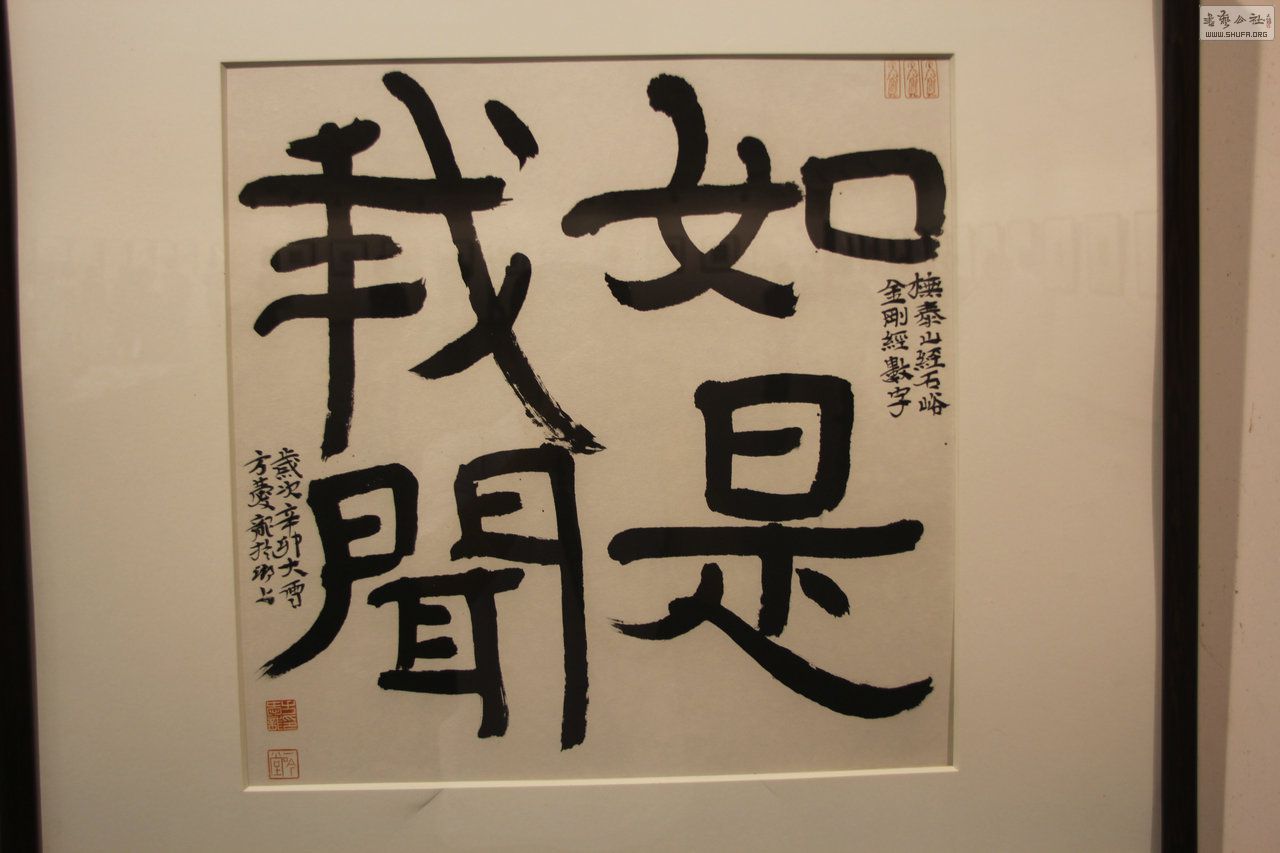 如是
我聞
橅泰山經石峪
金剛經數字
歲次辛卯大雪
方慶㪺於湖上
書藝公社
WWW.SHUFA.ORG